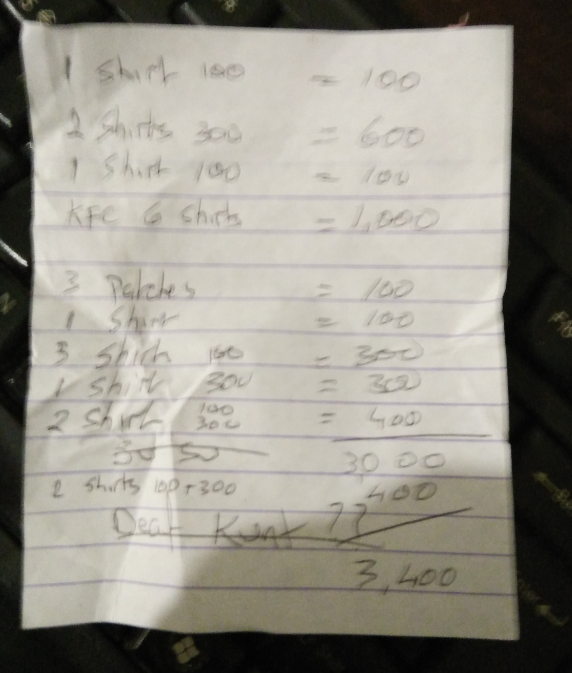 1 Shirt 100 = 100
2 Shirts 300 = 600
1 Shirt 100 = 100
KFC 6 Shirts = 1,000
3 Patches = 100
1 Shirt = 100
3 Shirt 100 = 300
1 Shirt 300 = 300
2 Shirt 100 300 = 400
3000
2 Shirts 100+300 400
Dear ??
3,400